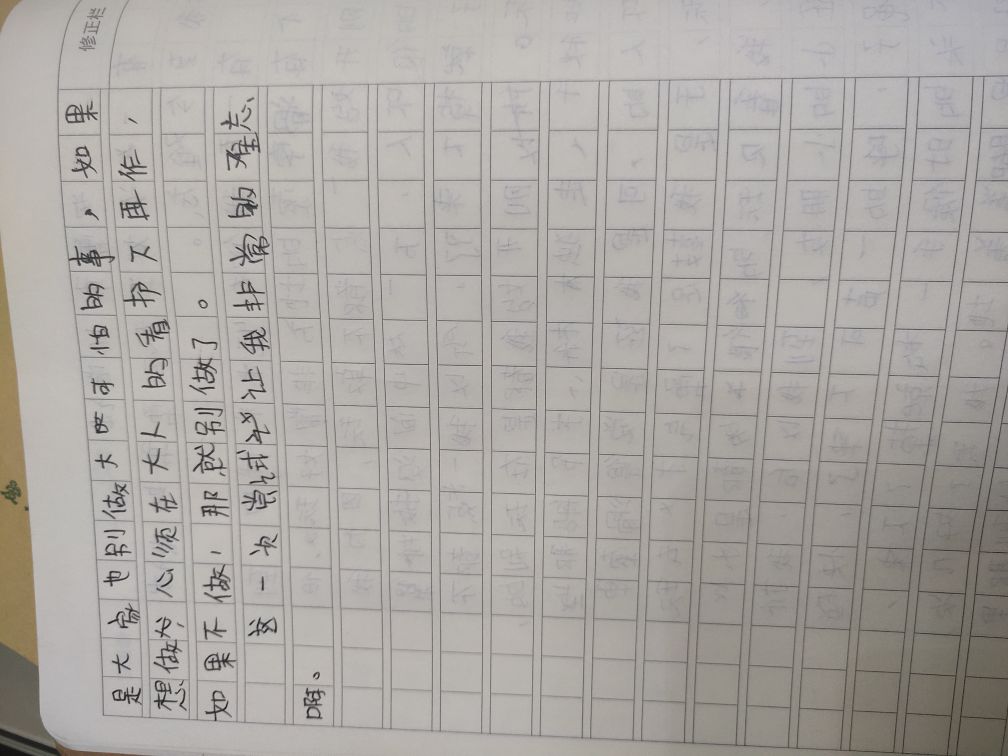 修正栏
是大家也别做大可怕的事，如果
想做心须在大人的看护下再作，
如果不做，那就别做了。
这一次尝试让我非常的难忘
啊。